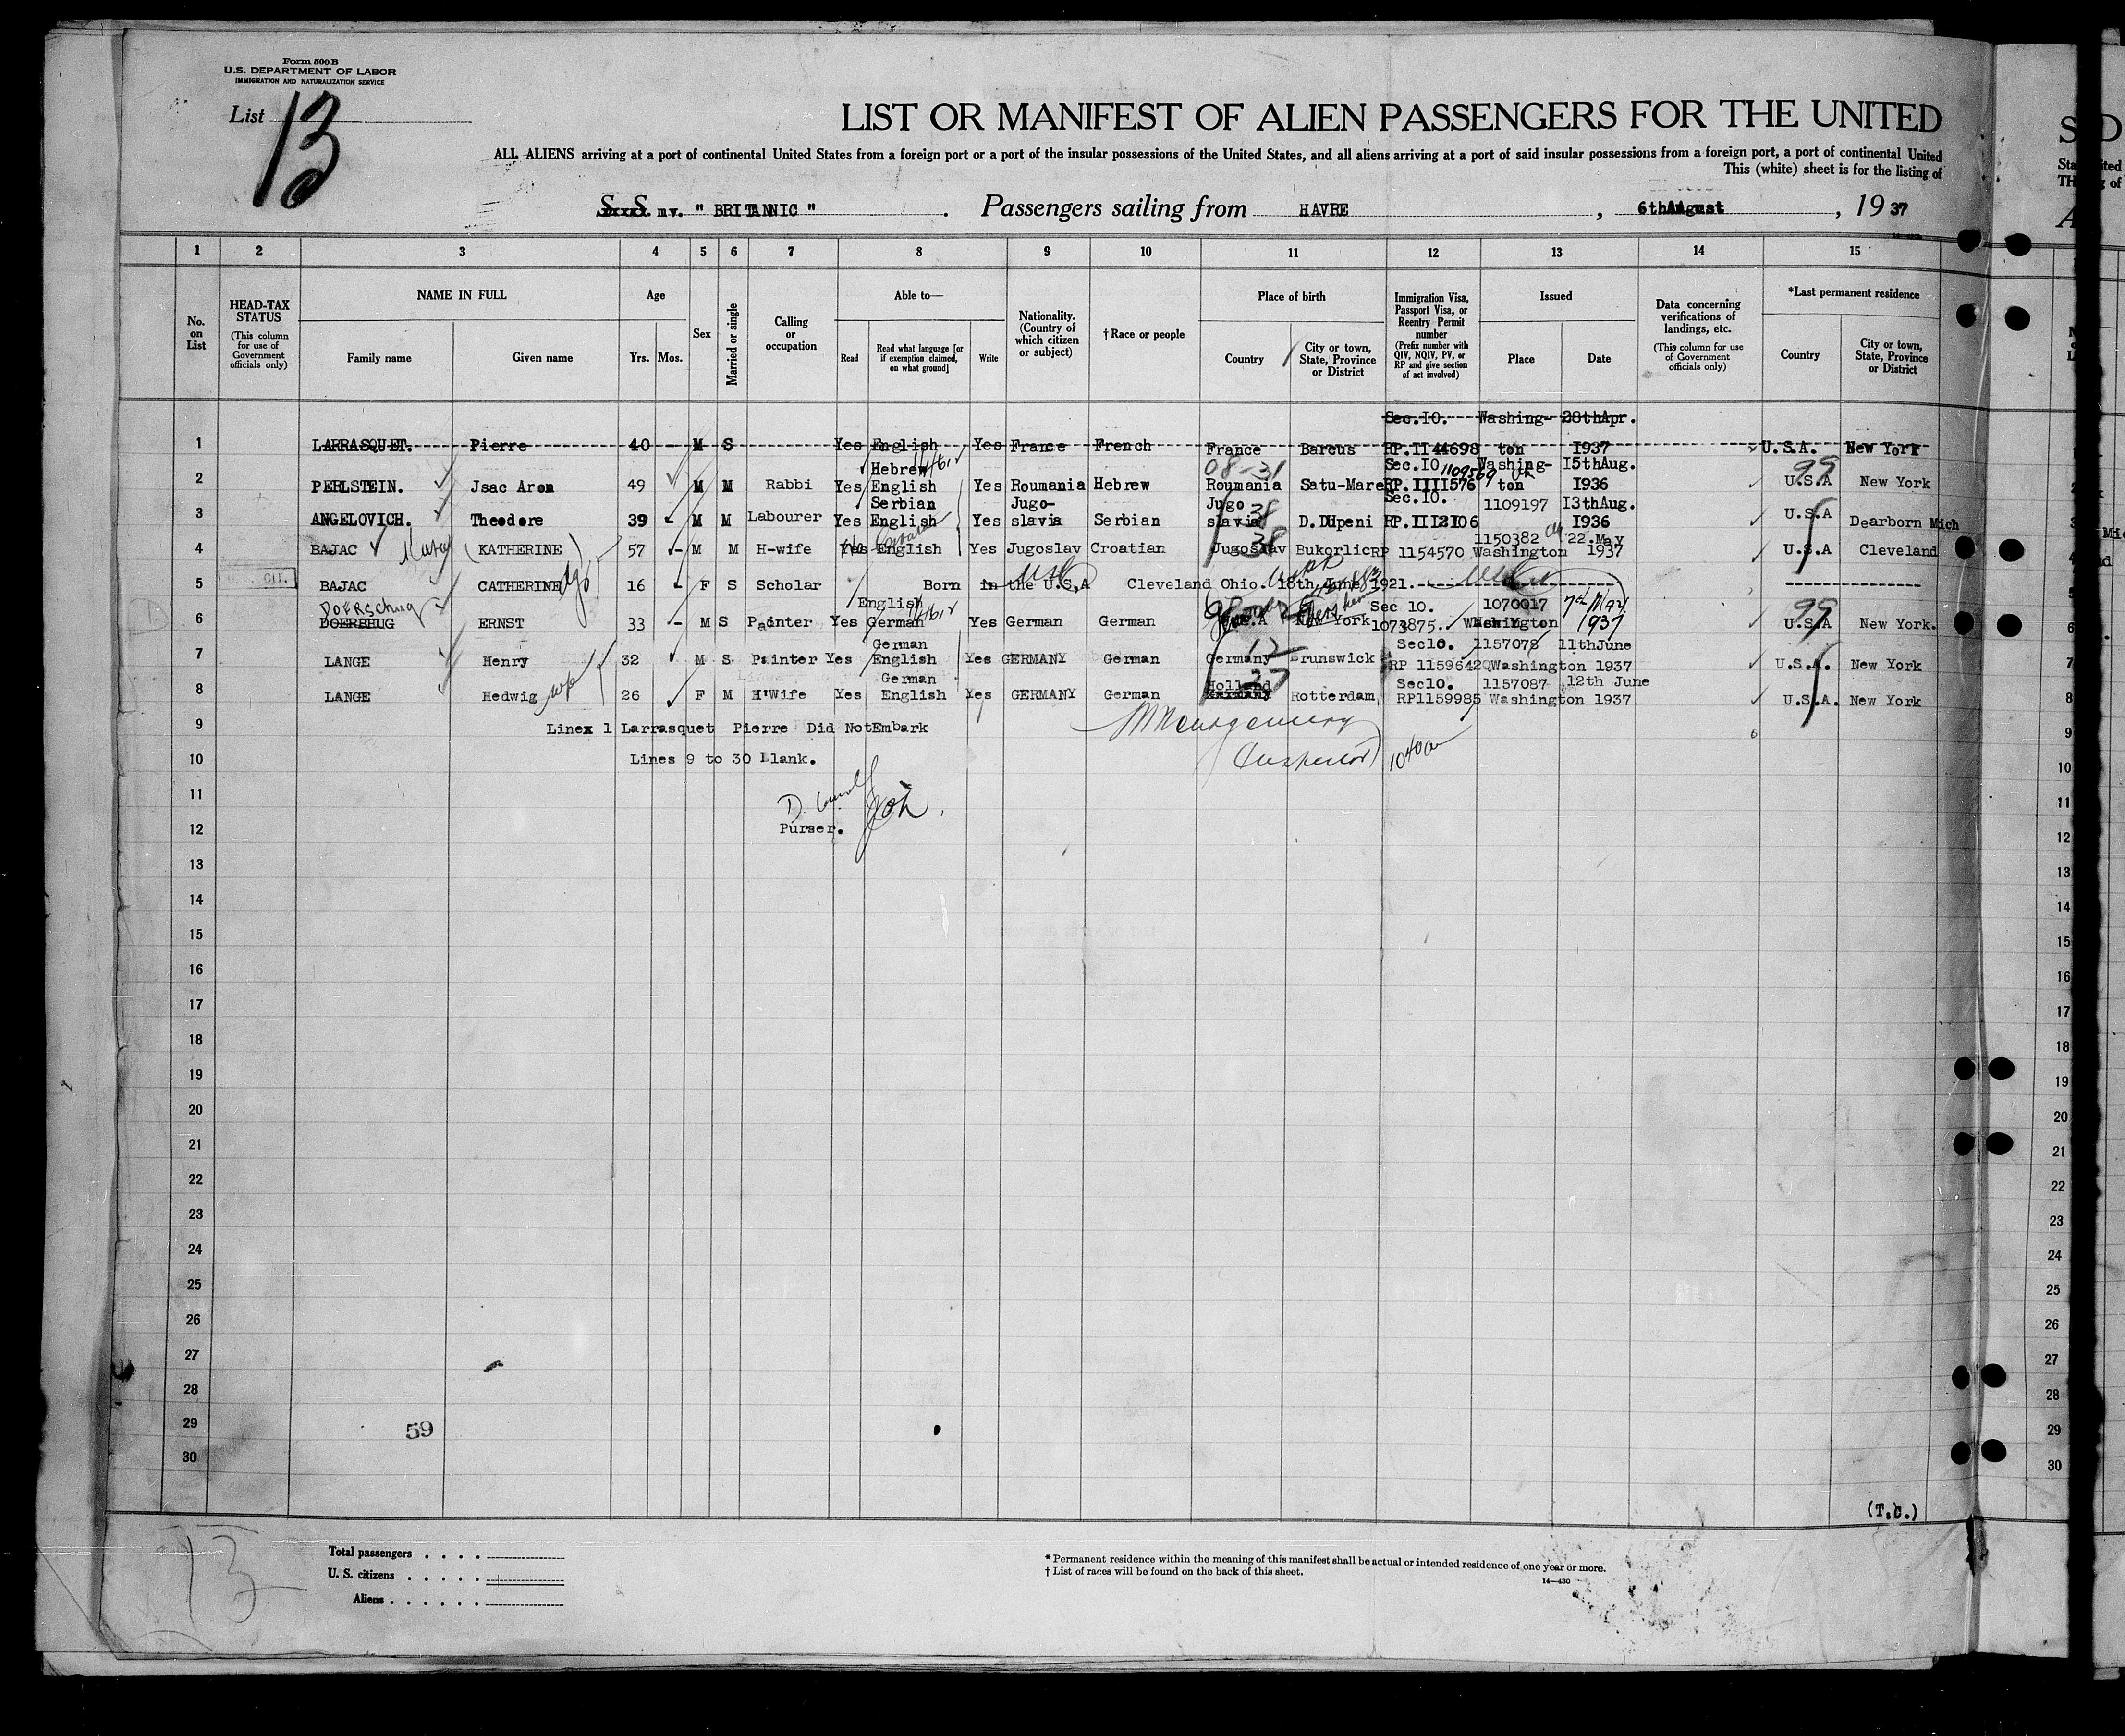 Form 500B
U.S. DEPARTMENT OF LABOR
IMMIGRATION AND NATURALIZATION SERVICE
List 13
LIST OR MANIFEST OF ALIEN PASSENGERS FOR THE UNITED
ALL ALIENS arriving at a port of continental United States from a foreign port or a port of the insular possessions of the United States, and all aliens arriving at a port of said insular possessions from a foreign port, a port of continental United
This (white) sheet is for the listing of
S. S. m.v. " BRITANNIC " . Passengers sailing from HAVRE , 6th August , 19 37
1 2 3 4 5 6 7 8 9 10 11 12 13 14 15
No. on List
HEAD-TAX STATUS
(This column for use of Government officials only)
NAME IN FULL
Family name Given name
Age
Yrs. Mos.
Sex
Married or single
Calling or occupation
Able to—
Read
Read what language [or if exemption claimed, on what ground]
Write
Nationality. (Country of which citizen or subject)
†Race or people
Place of birth
Country
City or town, State, Province or District
Immigration Visa, Passport Visa, or Reentry Permit number
(Prefix number with QIV, NQIV, PV, or RP and give section of act involved)
Issued
Place Date
Data concerning verifications of landings, etc.
(This column for use of Government officials only)
*Last permanent residence
Country
City or town, State, Province or District
Sec.IO. Washing- 28thApr.
1 LARRASQUET. Pierre 40 - M S Yes English Yes France French France Barcus RP.II44698 ton I937 U.S.A. New York
Hebrew 08-31 Sec.IO 1109569 Washing- I5thAug.
2 PERLSTEIN. Jsac Aron 49 M M Rabbi Yes English Yes Roumania Hebrew Roumania Satu-Mare RP.IIII576 ton I936 99 U.S.A New York
Serbian Jugo- Jugo 38 Sec.IO. 1109197 I3thAug.
3 ANGELOVICH. Theodore 39 - M M Labourer Yes English Yes slavia Serbian slavia D.Dupeni RP.III2I06 I936 U.S.A Dearborn Mich
1150382 22.May
4 BAJAC (KATHERINE) 57 - M M H-wife Yes English Yes Jugoslav Croatian Jugoslav 38 Bukorlic RP 1154570 Washington 1937 U.S.A Cleveland
U.S. CIT.
5 BAJAC CATHERINE dgt 16 - F S Scholar Born in the U.S,A Cleveland Ohio. 18th June 1921.
DOERSChug English Sec 10. 1070017 7th May
6 DOERBHUG ERNST 33 - M S Painter Yes German Yes German German U.S.A New York 1073875. Washington 1937 99 U.S.A New York.
German 12 Sec10. 1157078 11thJune
7 LANGE Henry 32 M S Painter Yes English Yes GERMANY German Germany Brunswick RP 1159642 Washington 1937 U.S.A. New York
German Holland 27 Sec10. 1157087 12th June
8 LANGE Hedwig wife 26 F M H'Wife Yes English Yes GERMANY German Germany Rotterdam, RP1159985 Washington 1937 U.S.A. New York
9 Linex 1 Larrasquet Pierre Did NotEmbark Montgomery
10 Lines 9 to 30 Blank. Inspector
11
12 Purser.
13
14
15
16
17
18
19
20
21
22
23
24
25
26
27
28
29 59
30
(T.C.)
13
Total passengers . . . .
U. S. citizens . . . . .
Aliens . . . . . .
* Permanent residence within the meaning of this manifest shall be actual or intended residence of one year or more.
† List of races will be found on the back of this sheet.
14—430